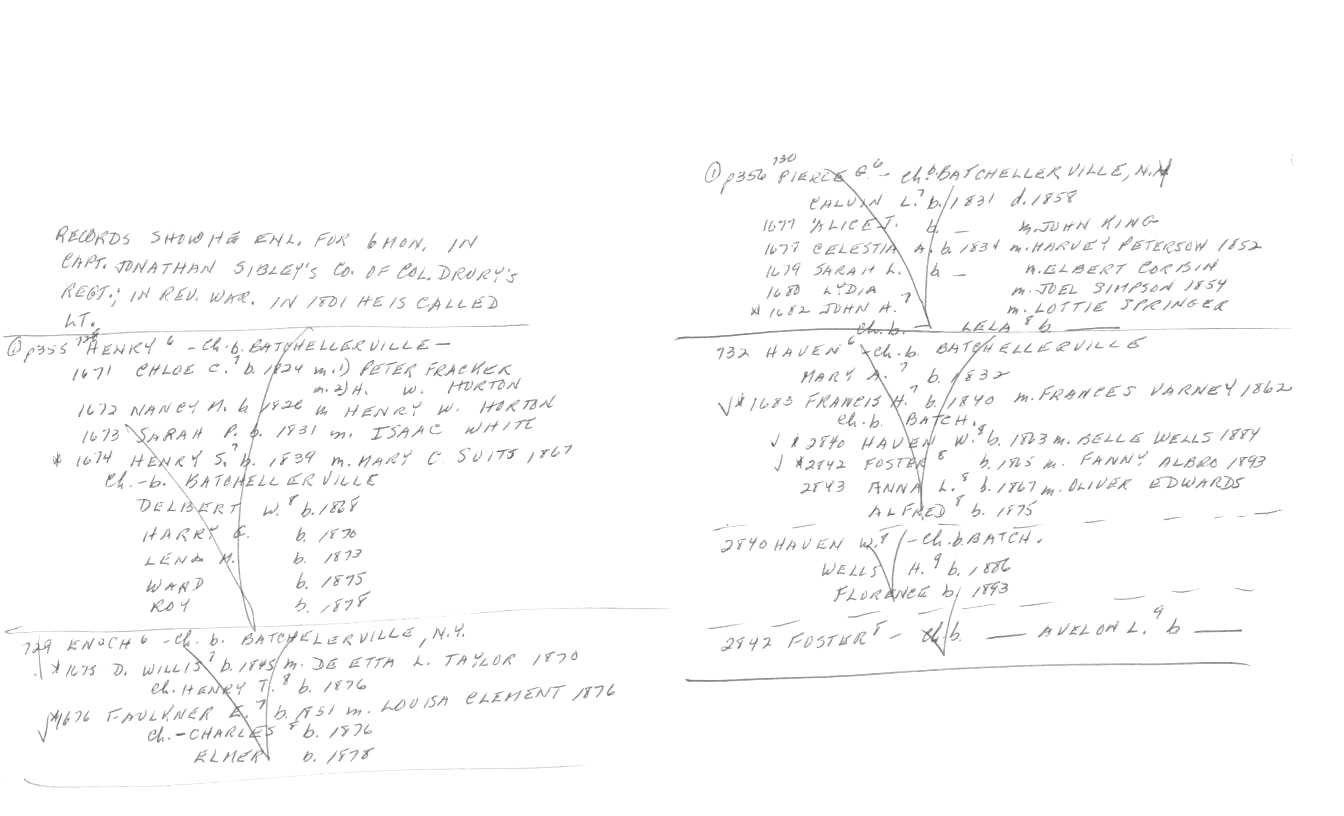 RECORDS SHOW HE ENL. FOR 6 MON. IN
CAPT. JONATHAN SIBLEY'S CO. OF COL. DRURY'S
REGT.; IN REV. WAR. IN 1801 HE IS CALLED
LT.
① p355 728 HENRY 6 - Ch. b. BATCHELLERVILLE -
1671 CHLOE C. 7 b. 1824 m. 1) PETER FRACKER
m. 2) H. W. HORTON
1672 NANCY M. b 1826 m HENRY W. HORTON
1673 SARAH P. b. 1831 m. ISAAC WHITE
* 1674 HENRY S. 7 b. 1839 m. MARY C. SUITS 1867
Ch. - b. BATCHELLERVILLE
DELBERT W. 8 b. 1868
HARRY E. b. 1870
LENA M. b. 1873
WARD b. 1875
ROY b. 1878
729 ENOCH 6 - Ch. b. BATCHELERVILLE, N.Y.
* 1675 D. WILLIS 7 b. 1845 m. DE ETTA L. TAYLOR 1870
Ch. HENRY T. 8 b. 1876
√ * 1676 FAULKNER E. 7 b. 1851 m. LOUISA CLEMENT 1876
Ch. - CHARLES 8 b. 1876
ELMER b. 1878
① p356 730 PIERCE G. 6 - Ch. b. BATCHELLERVILLE, N.Y
CALVIN L. 7 b. 1831 d. 1858
1677 ALICE J. b. - m. JOHN KING
1678 CELESTIA A. b. 1834 m. HARVEY PETERSON 1852
1679 SARAH L. b - m. ELBERT CORBIN
1680 LYDIA m. JOEL SIMPSON 1854
* 1682 JOHN H. 7 m. LOTTIE SPRINGER
Ch. b. — LELA 8 b —
732 HAVEN 6 - Ch. b. BATCHELLERVILLE
MARY A. 7 b. 1832
√ * 1683 FRANCIS H. 7 b. 1840 m. FRANCES VARNEY 1862
Ch. b. BATCH.
√ * 2840 HAVEN W. 8 b. 1863 m. BELLE WELLS 1884
√ * 2842 FOSTER 8 b. 1865 m. FANNY ALBRO 1893
2843 ANNA L. 8 b. 1867 m. OLIVER EDWARDS
ALFRED 8 b. 1875
2840 HAVEN W. 8 - Ch. b. BATCH.
WELLS H. 9 b. 1886
FLORENCE b. 1893
2842 FOSTER 8 - Ch b. — AVELON L. 9 b —